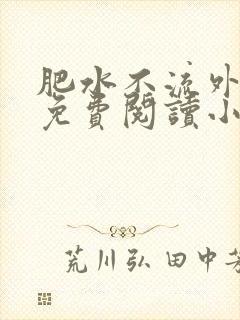 肥水不流外
免費閱讀小
荒川弘 田中芳